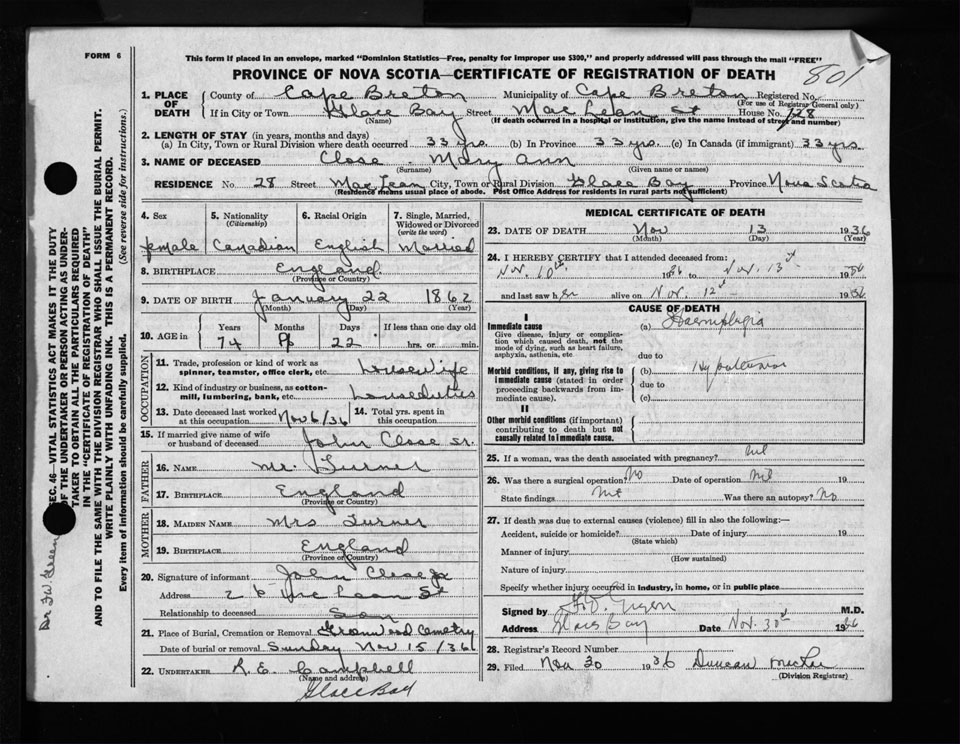 This form if placed in an envelope, marked "Dominion Statistics—Free, penalty for improper use $300," and properly addressed will pass through the mail "FREE"
FORM 6
PROVINCE OF NOVA SCOTIA—CERTIFICATE OF REGISTRATION OF DEATH
801
1. PLACE OF DEATH
County of Cape Breton Municipality of Cape Breton Registered No.
(For use of Registrar General only)
If in City or Town Glace Bay Street MacLean St House No. 28
(Name) (If death occurred in a hospital or institution, give the name instead of street and number)
2. LENGTH OF STAY (in years, months and days)
(a) In City, Town or Rural Division where death occurred 33 yrs. (b) In Province 33 yrs. (c) In Canada (if immigrant) 33 yrs
3. NAME OF DECEASED Close - Mary Ann
(Surname) (Given name or names)
RESIDENCE No. 28 Street MacLean City, Town or Rural Division Glace Bay Province Nova Scotia
(Residence means usual place of abode. Post Office Address for residents in rural parts not sufficient)
4. Sex female
5. Nationality (Citizenship) Canadian
6. Racial Origin English
7. Single, Married, Widowed or Divorced (write the word) Married
8. BIRTHPLACE England
(Province or Country)
9. DATE OF BIRTH January 22 1862
(Month) (Day) (Year)
10. AGE in Years Months Days If less than one day old
74 22 hrs. or min.
OCCUPATION
11. Trade, profession or kind of work as spinner, teamster, office clerk, etc. Housewife
12. Kind of industry or business, as cotton-mill, lumbering, bank, etc. House duties
13. Date deceased last worked at this occupation Nov 6/36
14. Total yrs. spent in this occupation
15. If married give name of wife or husband of deceased John Close sr.
FATHER
16. NAME Mr. Turner
17. BIRTHPLACE England
(Province or Country)
MOTHER
18. MAIDEN NAME Mrs Turner
19. BIRTHPLACE England
(Province or Country)
20. Signature of informant John Close jr
Address 26 McLean St
Relationship to deceased Son
21. Place of Burial, Cremation or Removal Greenwood Cemetry
Date of burial or removal Sunday Nov 15/36
22. UNDERTAKER R. E. Campbell
(Name and address)
Glace Bay
MEDICAL CERTIFICATE OF DEATH
23. DATE OF DEATH Nov 13 1936
(Month) (Day) (Year)
24. I HEREBY CERTIFY that I attended deceased from:
Nov. 10th 1936 to Nov. 13th 1936
and last saw her alive on Nov. 12th 1936
CAUSE OF DEATH
I
Immediate cause
Give disease, injury or complication which caused death, not the mode of dying, such as heart failure, asphyxia, asthenia, etc
(a) Haemiplegia
due to
Morbid conditions, if any, giving rise to immediate cause (stated in order proceeding backwards from immediate cause).
(b) Hypertension
due to
(c)
II
Other morbid conditions (if important) contributing to death but not causally related to immediate cause.
25. If a woman, was the death associated with pregnancy? nil
26. Was there a surgical operation? No Date of operation Nil 19
State findings Was there an autopsy? No
27. If death was due to external causes (violence) fill in also the following:—
Accident, suicide or homicide? Date of injury 19
(State which)
Manner of injury
(How sustained)
Nature of injury
Specify whether injury occurred in industry, in home, or in public place
Signed by M.D.
Address Glace Bay Date Nov. 30 1936
28. Registrar's Record Number
29. Filed Nov 30 1936 Duncan
(Division Registrar)
SEC. 46—VITAL STATISTICS ACT MAKES IT THE DUTY
OF THE UNDERTAKER OR PERSON ACTING AS UNDER-
TAKER TO OBTAIN ALL THE PARTICULARS REQUIRED
IN THE "CERTIFICATE OF REGISTRATION OF DEATH"
AND TO FILE THE SAME WITH THE DIVISION REGISTRAR WHO SHALL ISSUE THE BURIAL PERMIT.
WRITE PLAINLY WITH UNFADING INK. THIS IS A PERMANENT RECORD.
Every item of information should be carefully supplied. (See reverse side for instructions.)